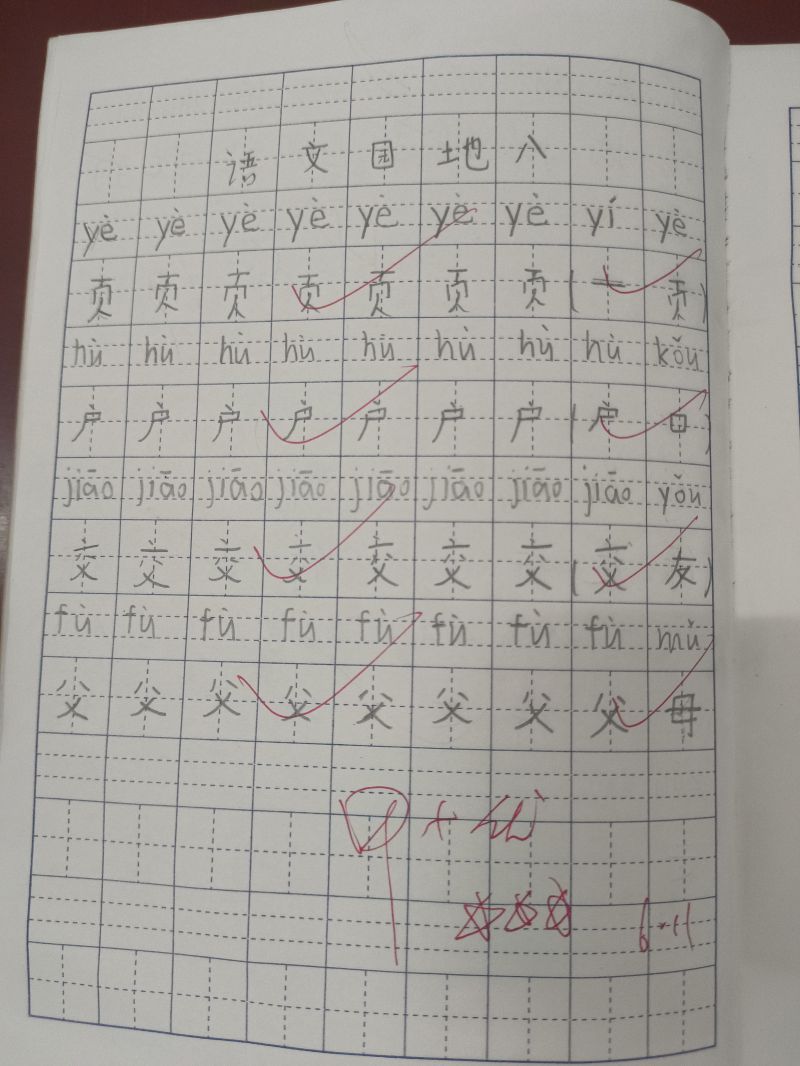 语文园地八
yè yè yè yè yè yè yè yí yè
页 页 页 页 页 页 页 (一 页)
hù hù hù hù hù hù hù hù kǒu
户 户 户 户 户 户 户 (户 口)
jiāo jiāo jiāo jiāo jiāo jiāo jiāo jiāo yǒu
交 交 交 交 交 交 交 (交 友)
fù fù fù fù fù fù fù fù mǔ
父 父 父 父 父 父 父 父 母
6.11